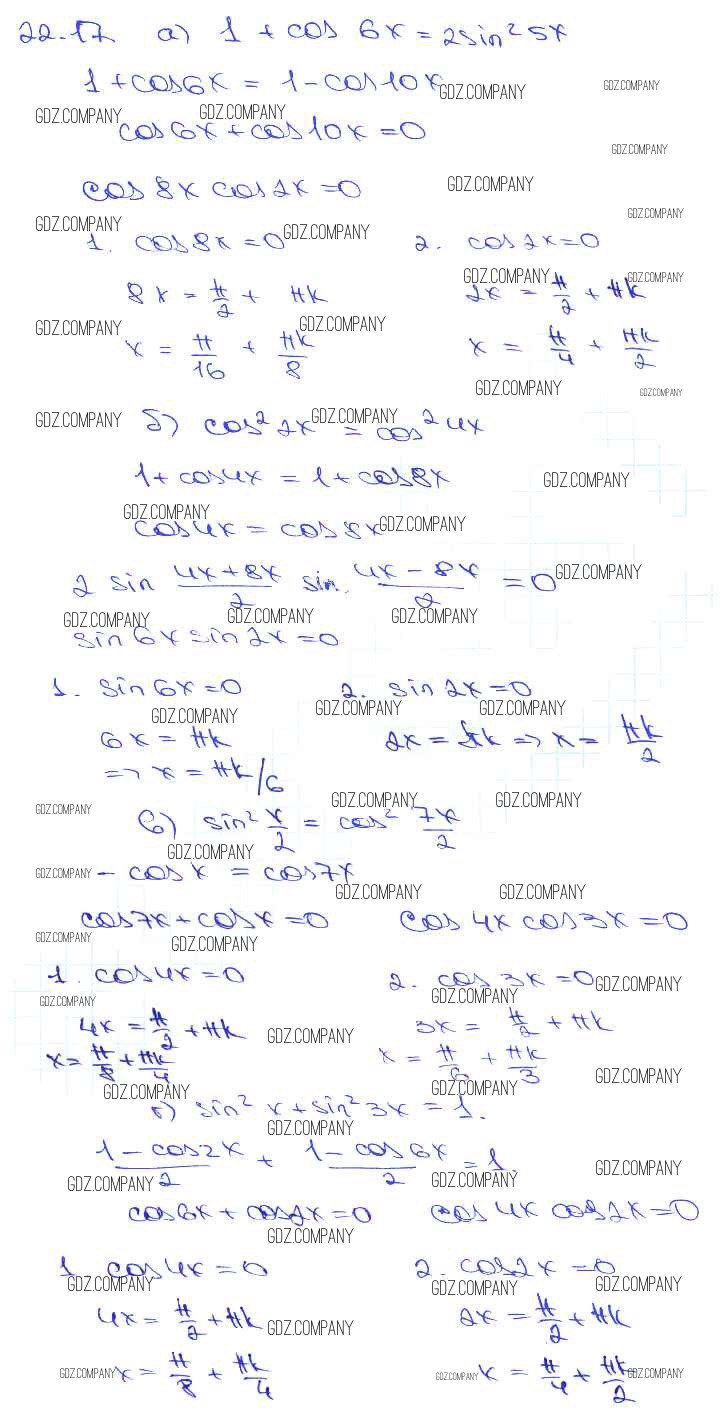 22.17 а) 1 + cos 6x = 2sin² 5x
1 + cos6x = 1 - cos10x GDZ.COMPANY GDZ.COMPANY
GDZ.COMPANY GDZ.COMPANY
cos6x + cos10x = 0
GDZ.COMPANY
cos 8x cos 2x = 0 GDZ.COMPANY
GDZ.COMPANY
GDZ.COMPANY
1. cos8x = 0 GDZ.COMPANY 2. cos2x = 0
GDZ.COMPANY GDZ.COMPANY
8x = π/2 + πk 2x = π/2 + πk
GDZ.COMPANY GDZ.COMPANY
x = π/16 + πk/8 x = π/4 + πk/2
GDZ.COMPANY GDZ.COMPANY
GDZ.COMPANY б) cos² 2x GDZ.COMPANY = cos² 4x
1 + cos4x = 1 + cos8x GDZ.COMPANY
GDZ.COMPANY
cos4x = cos8x GDZ.COMPANY
2 sin (4x + 8x)/2 sin (4x - 8x)/2 = 0 GDZ.COMPANY
GDZ.COMPANY GDZ.COMPANY GDZ.COMPANY
sin6x sin2x = 0
1. sin6x = 0 2. sin2x = 0
GDZ.COMPANY GDZ.COMPANY GDZ.COMPANY
6x = πk 2x = πk => x = πk/2
=> x = πk/6
GDZ.COMPANY GDZ.COMPANY GDZ.COMPANY
в) sin² x/2 = cos² 7x/2
GDZ.COMPANY
GDZ.COMPANY - cos x = cos7x
GDZ.COMPANY GDZ.COMPANY
cos7x + cosx = 0 cos 4x cos3x = 0
GDZ.COMPANY GDZ.COMPANY
1. cos4x = 0 2. cos 3x = 0 GDZ.COMPANY
GDZ.COMPANY GDZ.COMPANY
4x = π/2 + πk GDZ.COMPANY 3x = π/2 + πk
x = π/8 + πk/4 x = π/6 + πk/3 GDZ.COMPANY
GDZ.COMPANY GDZ.COMPANY
г) sin² x + sin² 3x = 1.
GDZ.COMPANY
(1 - cos2x)/2 + (1 - cos6x)/2 = 1. GDZ.COMPANY
GDZ.COMPANY GDZ.COMPANY
cos6x + cos2x = 0 cos 4x cos2x = 0
GDZ.COMPANY
1. cos4x = 0 2. cos2x = 0
GDZ.COMPANY GDZ.COMPANY GDZ.COMPANY
4x = π/2 + πk GDZ.COMPANY 2x = π/2 + πk
GDZ.COMPANY x = π/8 + πk/4 GDZ.COMPANY x = π/4 + πk/2 GDZ.COMPANY